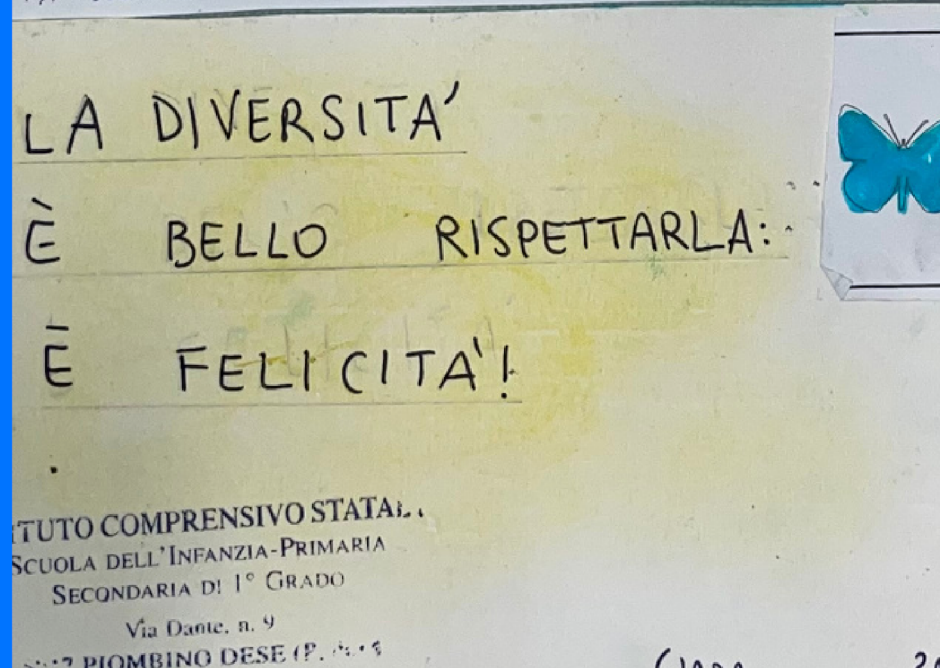 LA DIVERSITA'
È BELLO RISPETTARLA:
È FELICITA'!
TUTO COMPRENSIVO STATAL
SCUOLA DELL'INFANZIA-PRIMARIA
SECONDARIA DI 1° GRADO
Via Dante, n. 9
PIOMBINO DESE (P.